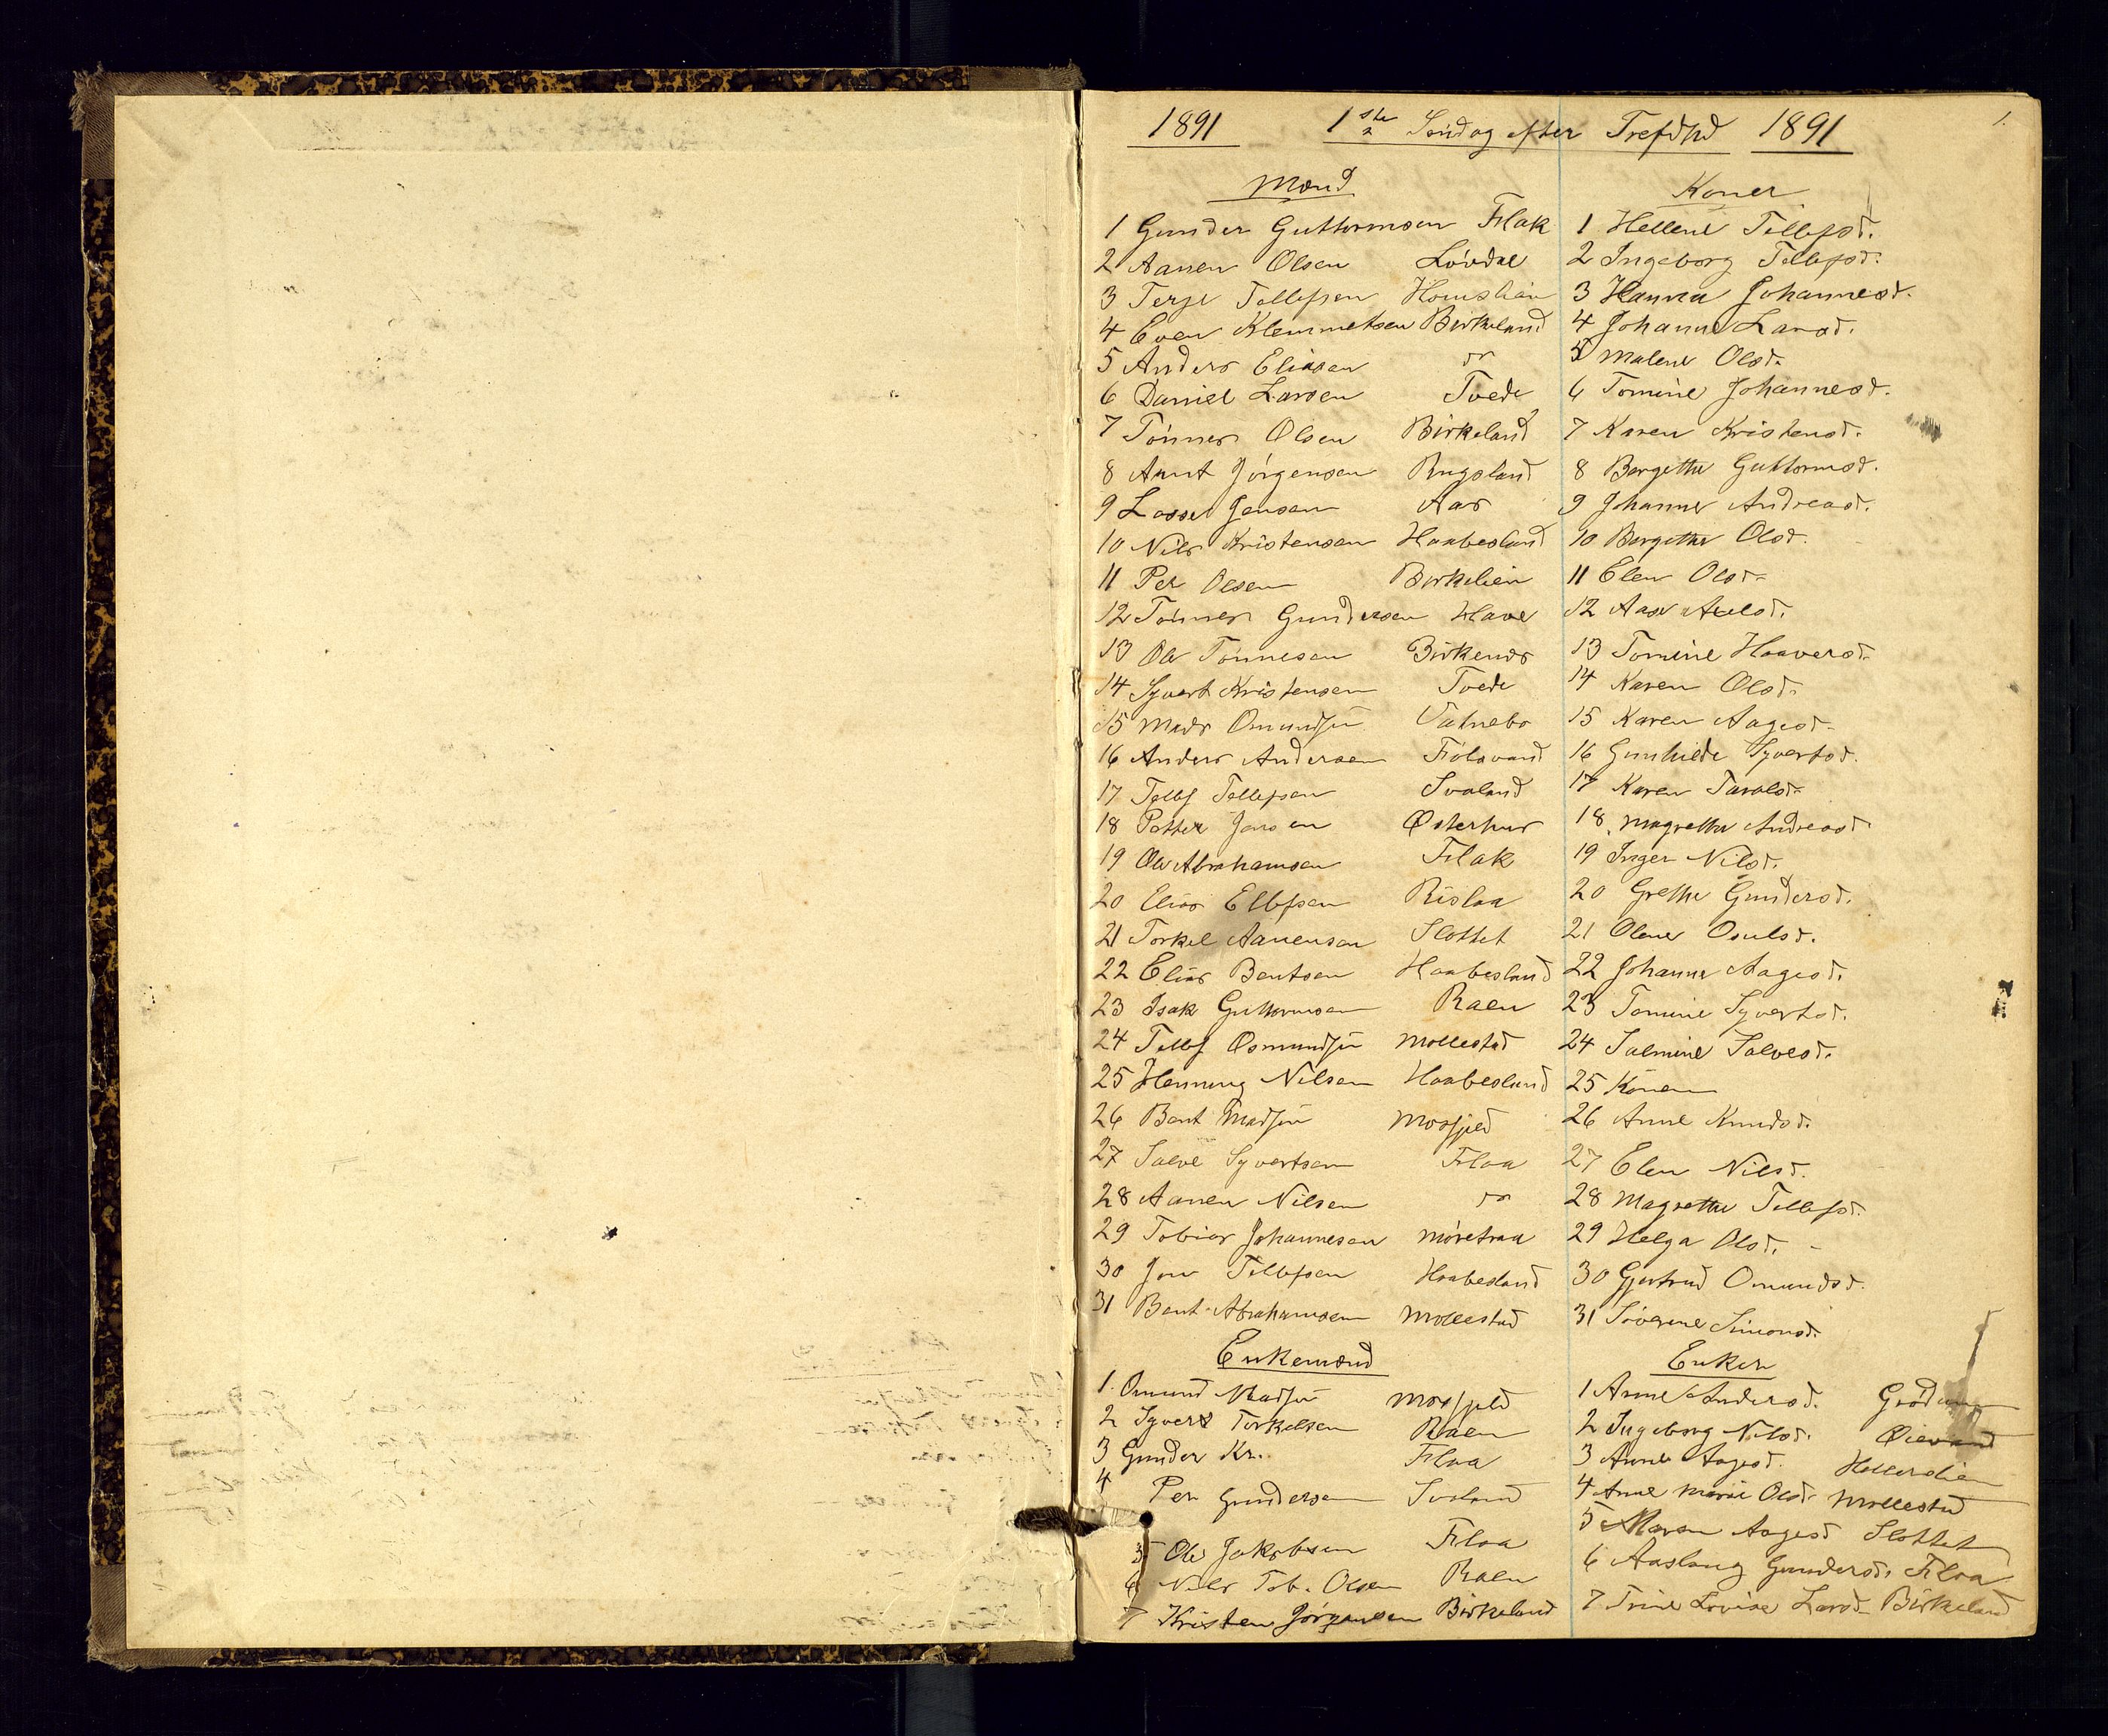 1.
1891 1ste Søndag efter Trefdhd 1891
Mænd Koner
1 Gunder Guttormsen Flak 1 Hellene Tellefsd.
2 Aanen Olsen Løvdal 2 Ingeborg Tellefsd.
3 Terje Tellefsen 3 Hanna Johannesd.
4 Even Klemmetsen Birkeland 4 Johanne Larsd.
5 Anders Eliasen do 5 Malene Olsd.
6 Daniel Larsen Tvede 6 Tomine Johannesd.
7 Tønnes Olsen Birkeland 7 Karen Kristensd.
8 Arnt Jørgensen Rugsland 8 Bergethe Guttormsd.
9 Lasse Jensen Aas 9 Johanne Andreasd.
10 Nils Kristensen Haabesland 10 Bergethe Olsd.
11 Per Olsen Birkelien 11 Elen Olsd.
12 Tønnes Gundersen Have 12 Aase Axelsd.
13 Ole Tønnesen Birkenes 13 Tomine Haaversd.
14 Syvert Kristensen Tvede 14 Karen Olsd.
15 Mads Omundsen Vatnebo 15 Karen Aagesd.
16 Anders Andersen Fiolsvand 16 Gunhilde Syvertsd.
17 Tellef Tellefsen Svaland 17 Karen Taralsd.
18 Petter Jensen Østerhus 18. Magrethe Andreasd.
19 Ole Abrahamsen Flak 19 Inger Nilsd.
20 Elias Ellefsen Rislaa 20 Grethe Gundersd.
21 Torkel Aanensen Slottet 21 Olene Osulsd.
22 Elias Bentsen Haabesland 22 Johanne Aagesd.
23 Isak Guttormsen Raen 23 Tomine Syvertsd.
24 Tellef Osmundsen Mollestad 24 Salmine Salvesd.
25 Henning Nilsen Haabesland 25 Konen
26 Bent Madsen Mosfjeld 26 Anne Knudsd.
27 Salve Syvertsen Flaa 27 Elen Nilsd.
28 Aanen Nilsen do 28 Magrethe Tellefsd.
29 Tobias Johannesen Møretraa 29 Helga Olsd.
30 Jens Tellefsen Haabesland 30 Gjertrud Omundsd.
31 Bent Abrahamsen Mollestad 31 Søverine Simonsd.
Enkemænd Enker
1. Omund Madsen Mosfjeld 1 Anne Andersd.
2 Syvert Torkelsen Raen 2 Ingeborg Nilsd. Øievand
3 Gunder Kr. Flaa 3 Anne Aagesd. Hellerslien
4 Per Gundersen Svaland 4 Anne Marie Olsd. Mollestad
5 Ole Jakobsen Flaa 5 Maren Aagesd Slottet
6 Nils Tob. Olsen Raen 6 Aaslaug Gundersd. Flaa
7 Kristen Jørgensen Birkeland 7 Trine Lovise Larsd. Birkeland